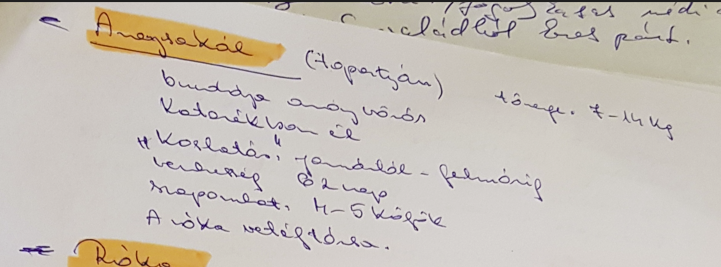 családból
Aranysakál (toportyán) tömege. 7-14 kg
bundája aranyvörös
Kotorékban él
"Koslatás" januártól - februárig
vemhesség 62 nap
szaporulat. 4-5 kölyök
A róka vetélytársa.
Róka